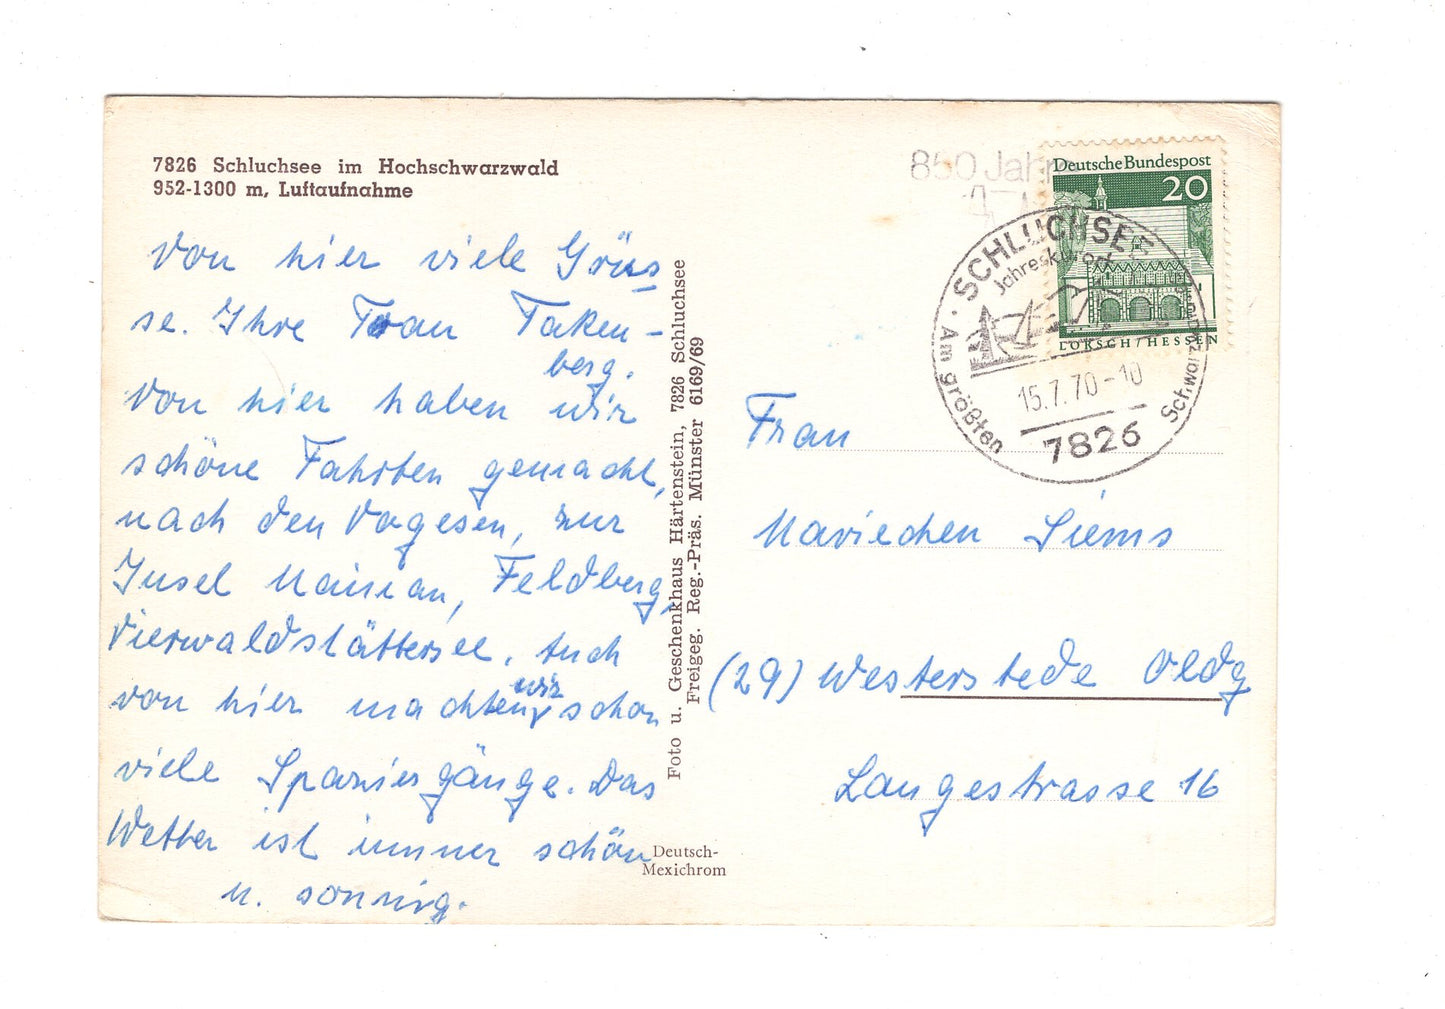 7826 Schluchsee im Hochschwarzwald
952-1300 m, Luftaufnahme
Von hier viele Grüs
se. Ihre Frau Faken-
berg.
Von hier haben wir
schöne Fahrten gemacht,
nach den Vogesen, zur
Insel Mainau, Feldberg,
Vierwaldstättersee. Auch
von hier machten wir schon
viele Spaziergänge. Das
Wetter ist immer schön
u. sonnig.
Foto u. Geschenkhaus Härtenstein, 7826 Schluchsee
Freigeg. Reg.-Präs. Münster 6169/69
Deutsch-
Mexichrom
850 Jahre
Deutsche Bundespost
20
LORSCH/HESSEN
SCHLUCHSEE
Jahreskurort
Am größten
15.7.70-10
7826
Frau
Mariechen Siems
(29) Westerstede Oldg
Langestrasse 16